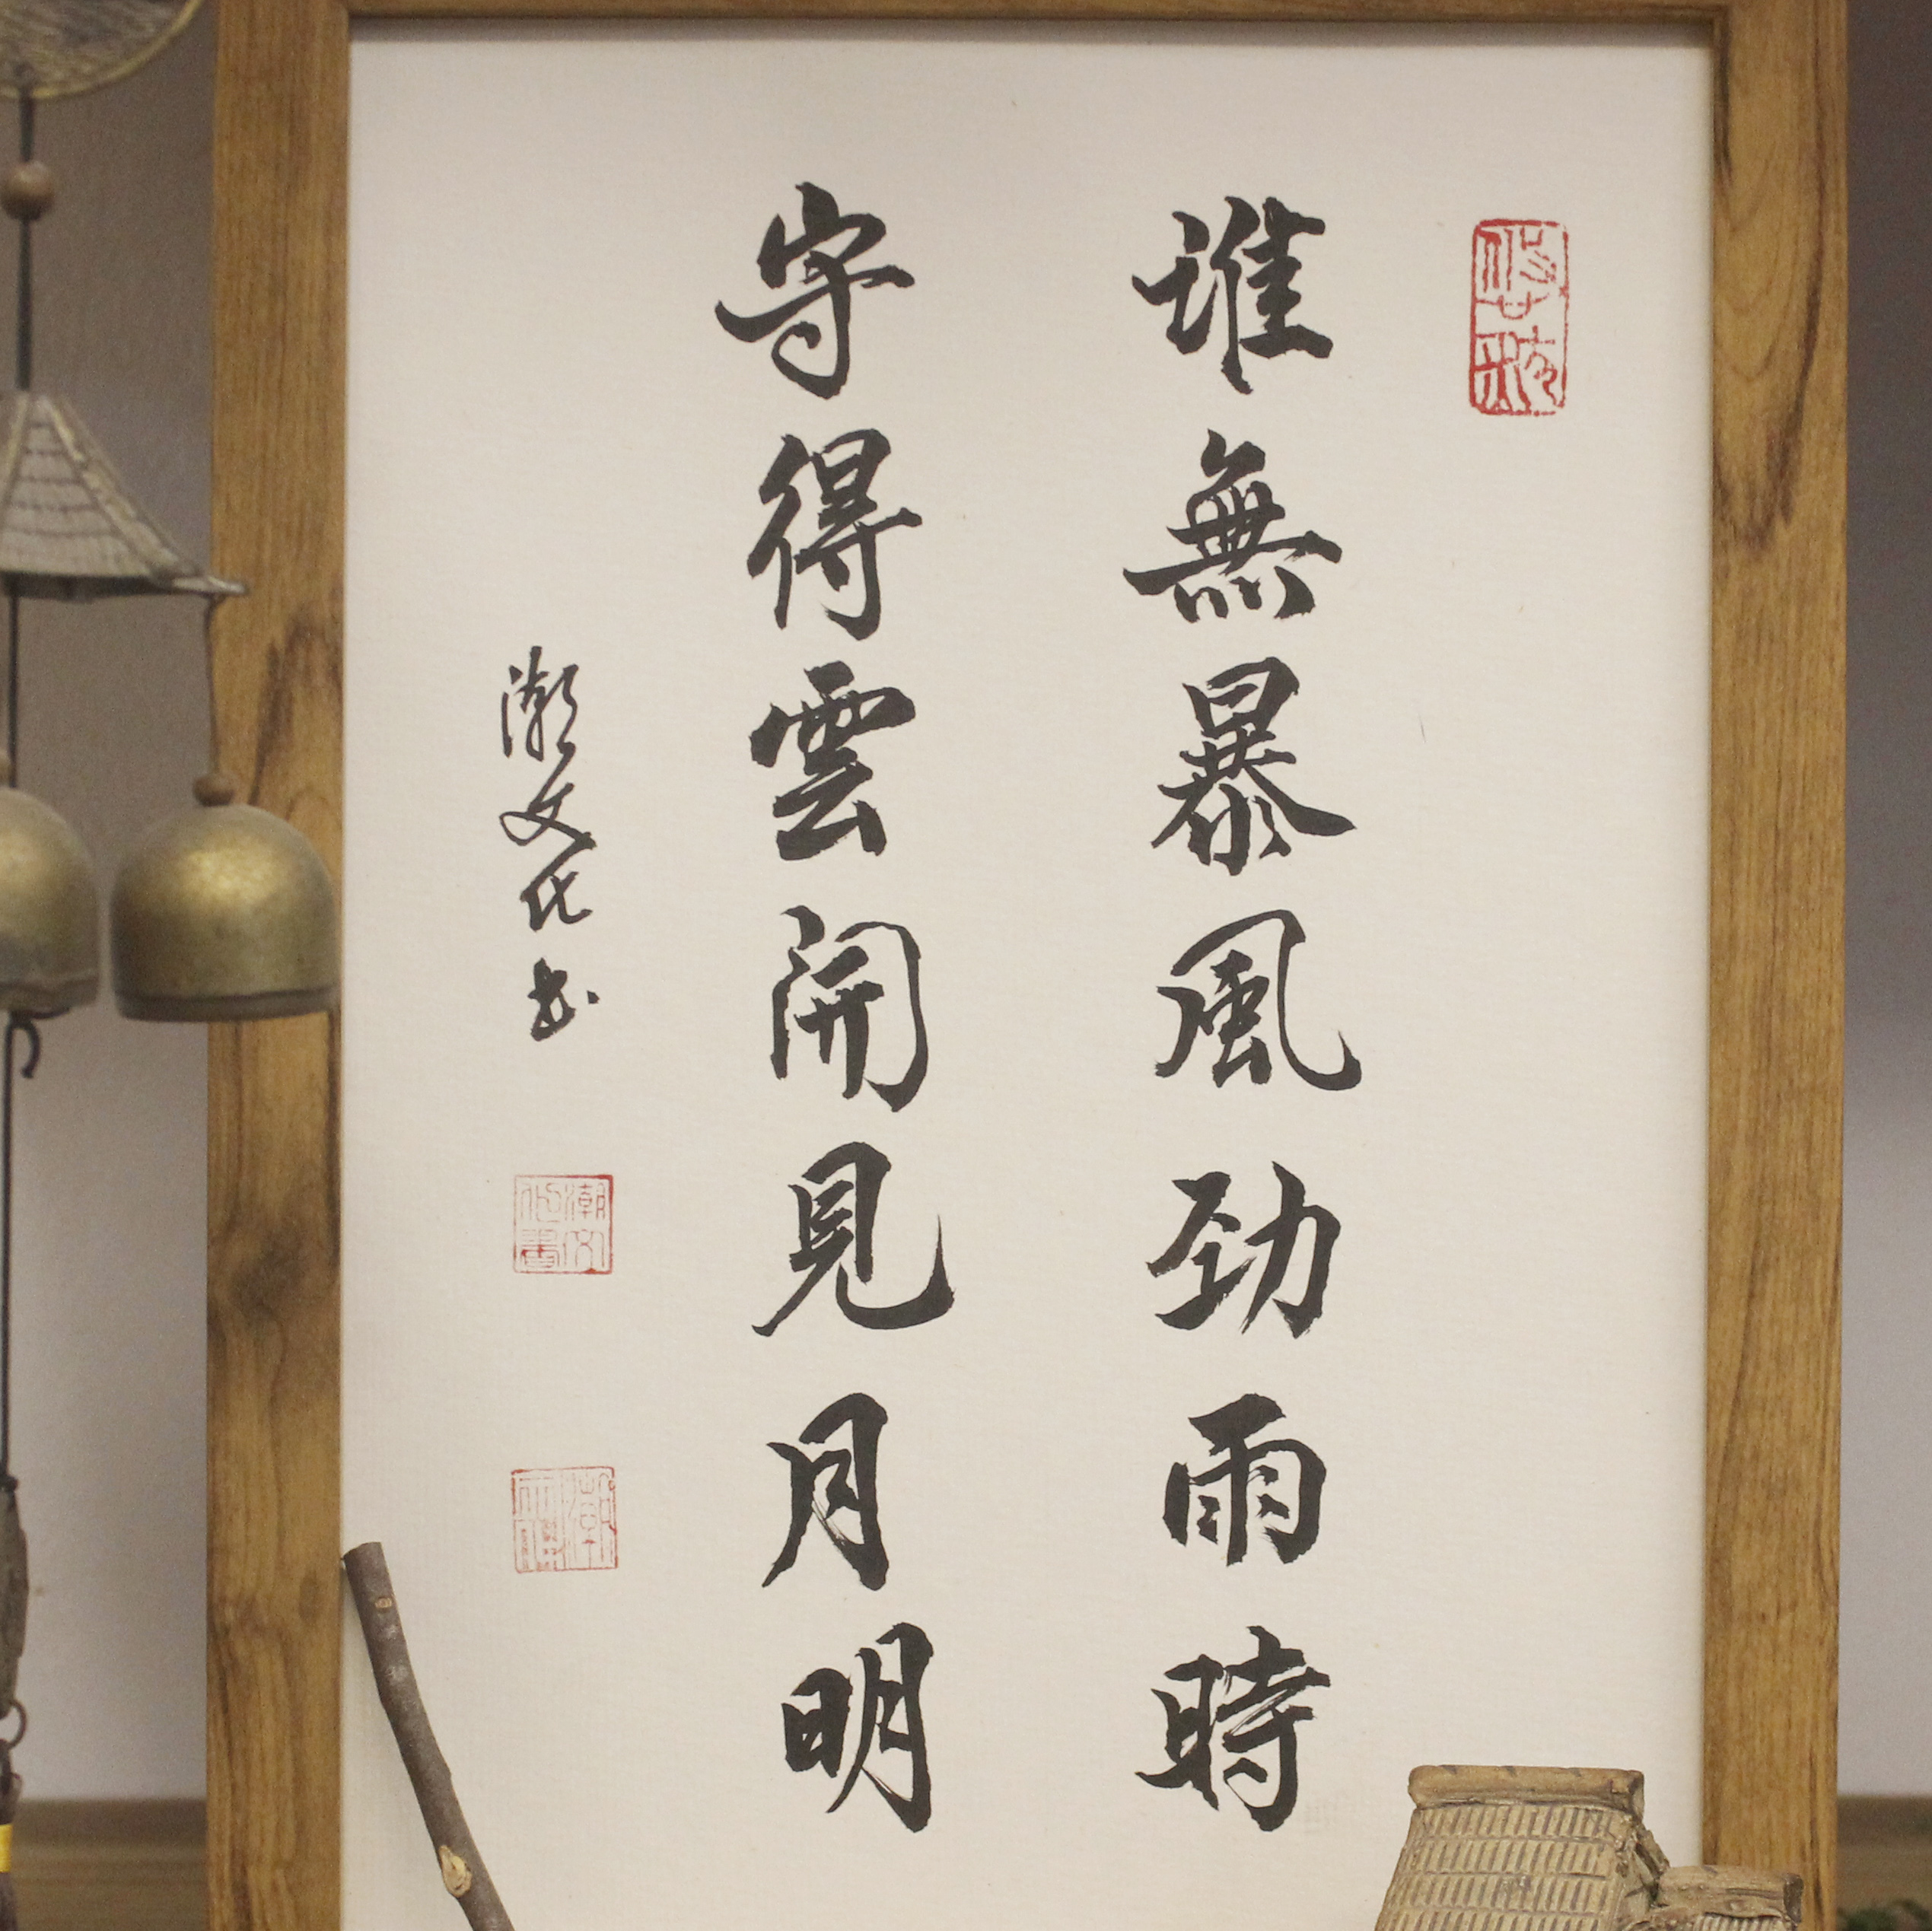 誰無暴風勁雨時
守得雲開見月明
潮文化书
潮文化書